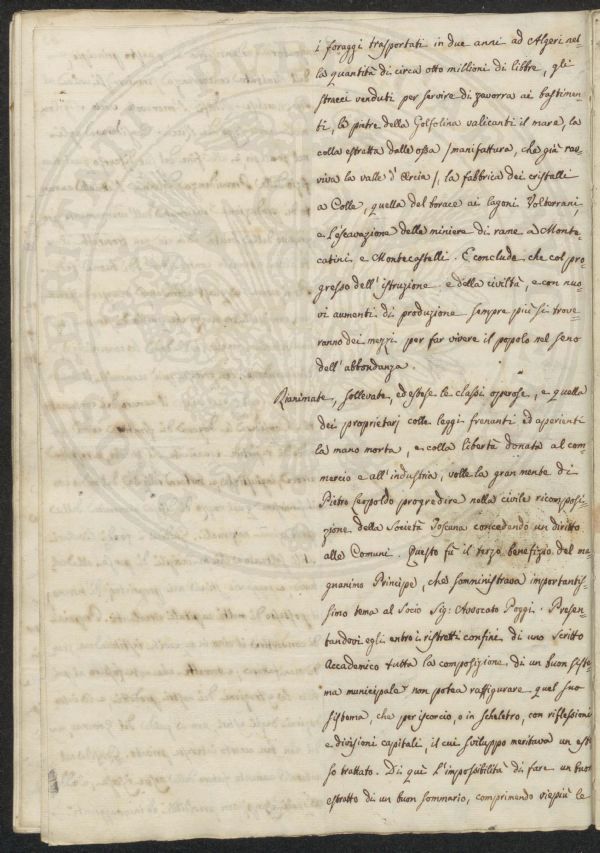 i foraggi trasportati in due anni ad Algeri nel=
la quantità di circa otto millioni di libbre, gli
stracci venduti per servire di zavorra ai bastimen=
ti, le pietre della Golfolina valicanti il mare, la
colla estratta dalle ossa /manifattura, che già rav=
viva la valle d'Orcia/, la fabbrica dei cristalli
a Colle, quella del borace ai lagoni Volterrani,
e l'escavazione delle miniere di rame a Monte=
catini e Montecastelli. E conclude che col pro=
gresso dell'istruzione e della civiltà, e con nuo=
vi aumenti di produzione sempre più si trove=
ranno dei mezzi per far vivere il popolo nel seno
dell'abbondanza.
Rianimate, sollevate, ed estese le classi operose, e quella
dei proprietarj colle leggi frenanti ed aperienti
la mano morta, e colla libertà donata al com=
mercio e all'industria, volle la gran mente di
Pietro Leopoldo progredire nella civile ricomposi=
zione della Società Toscana concedendo un diritto
alle Comuni. Questo fù il terzo benefizio del ma=
gnanimo Principe, che somministrava importantis=
simo tema al Socio Sig: Avvocato Poggi. Presen=
tandovi egli entro i ristretti confini di uno Scritto
Accademico tutta la composizione di un buon siste=
ma municipale non potea raffigurare quel suo
sistema, che per iscorcio, o in scheletro, con riflessioni
e divisioni capitali, il cui sviluppo meritava un este
so trattato. Di quì l'impossibilità di fare un buon
estratto di un buon sommario, comprimendo viepiù le